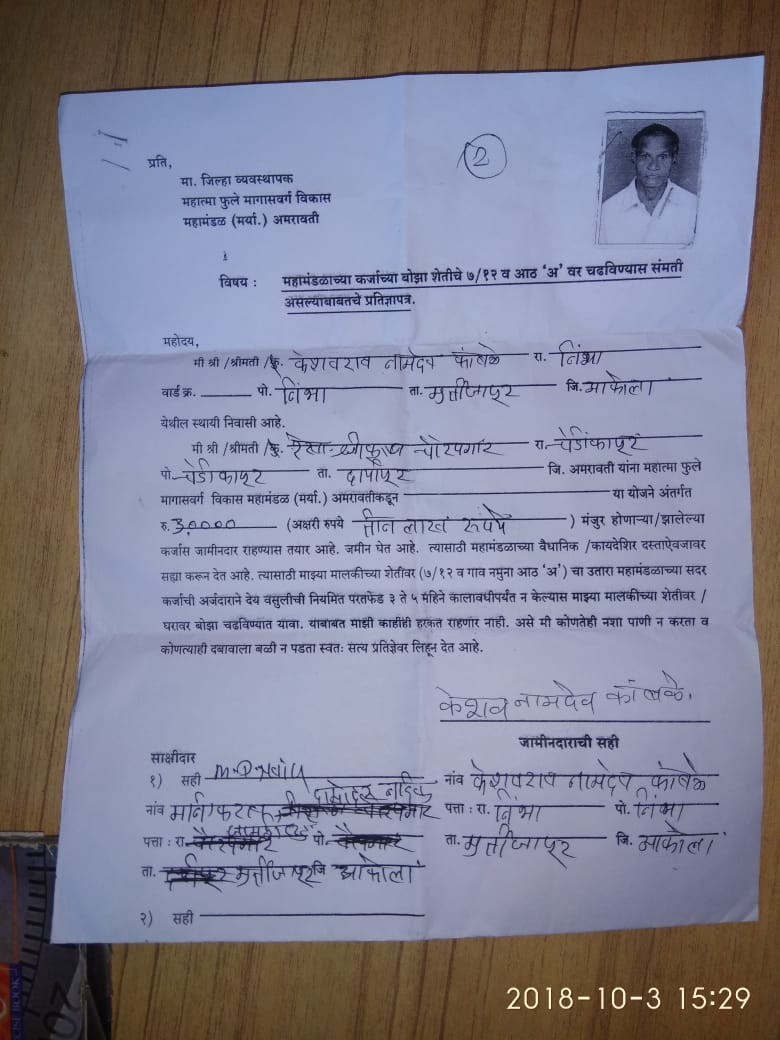 2
प्रति,
मा. जिल्हा व्यवस्थापक
महात्मा फुले मागासवर्ग विकास
महामंडळ (मर्या.) अमरावती
विषय : महामंडळाच्या कर्जाच्या बोझा शेतीचे ७/१२ व आठ ‘अ’ वर चढविण्यास संमती
असल्याबाबतचे प्रतिज्ञापत्र.
महोदय,
मी श्री /श्रीमती /कु. केशवराव नामदेव कांबळे रा. निंभा
वार्ड क्र. पो. निंभा ता. मुर्तीजापूर जि. आकोला
येथील स्थायी निवासी आहे.
मी श्री /श्रीमती /कु. रा.
पो. ता. दर्यापूर जि. अमरावती यांना महात्मा फुले
मागासवर्ग विकास महामंडळ (मर्या.) अमरावतीकडून या योजने अंतर्गत
रु. 30000 (अक्षरी रुपये तीन लाख रुपये ) मंजुर होणाऱ्या/झालेल्या
कर्जास जामीनदार राहण्यास तयार आहे. जमीन घेत आहे. त्यासाठी महामंडळाच्या वैधानिक /कायदेशिर दस्ताऐवजावर
सह्या करून देत आहे. त्यासाठी माझ्या मालकीच्या शेतीवर (७/१२ व गाव नमुना आठ ‘अ’) चा उतारा महामंडळाच्या सदर
कर्जाची अर्जदाराने देय वसुलीची नियमित परतफेड ३ ते ५ महिने कालावधीपर्यंत न केल्यास माझ्या मालकीच्या शेतीवर /
घरावर बोझा चढविण्यात यावा. याबाबत माझी काहीही हरकत राहणार नाही. असे मी कोणतेही नशा पाणी न करता व
कोणत्याही दबावाला बळी न पडता स्वतः सत्य प्रतिज्ञेवर लिहून देत आहे.
केशव नामदेव कांबळे.
जामीनदाराची सही
साक्षीदार
१) सही
नांव
पत्ता : रा. पो.
ता. मुर्तीजापूर जि आकोला
२) सही
नांव केशवराव नामदेव कांबळे
पत्ता : रा. निंभा पो. निंभा
ता. मुर्तीजापूर जि. आकोला
2018-10-3 15:29